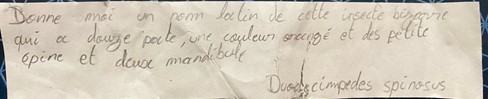 Donne moi un nom lactin de cette insecte bizarre
qui a douze pacte, une couleur orangé et des petite
épine et deux mandibule
Duodecimpedes spinosus